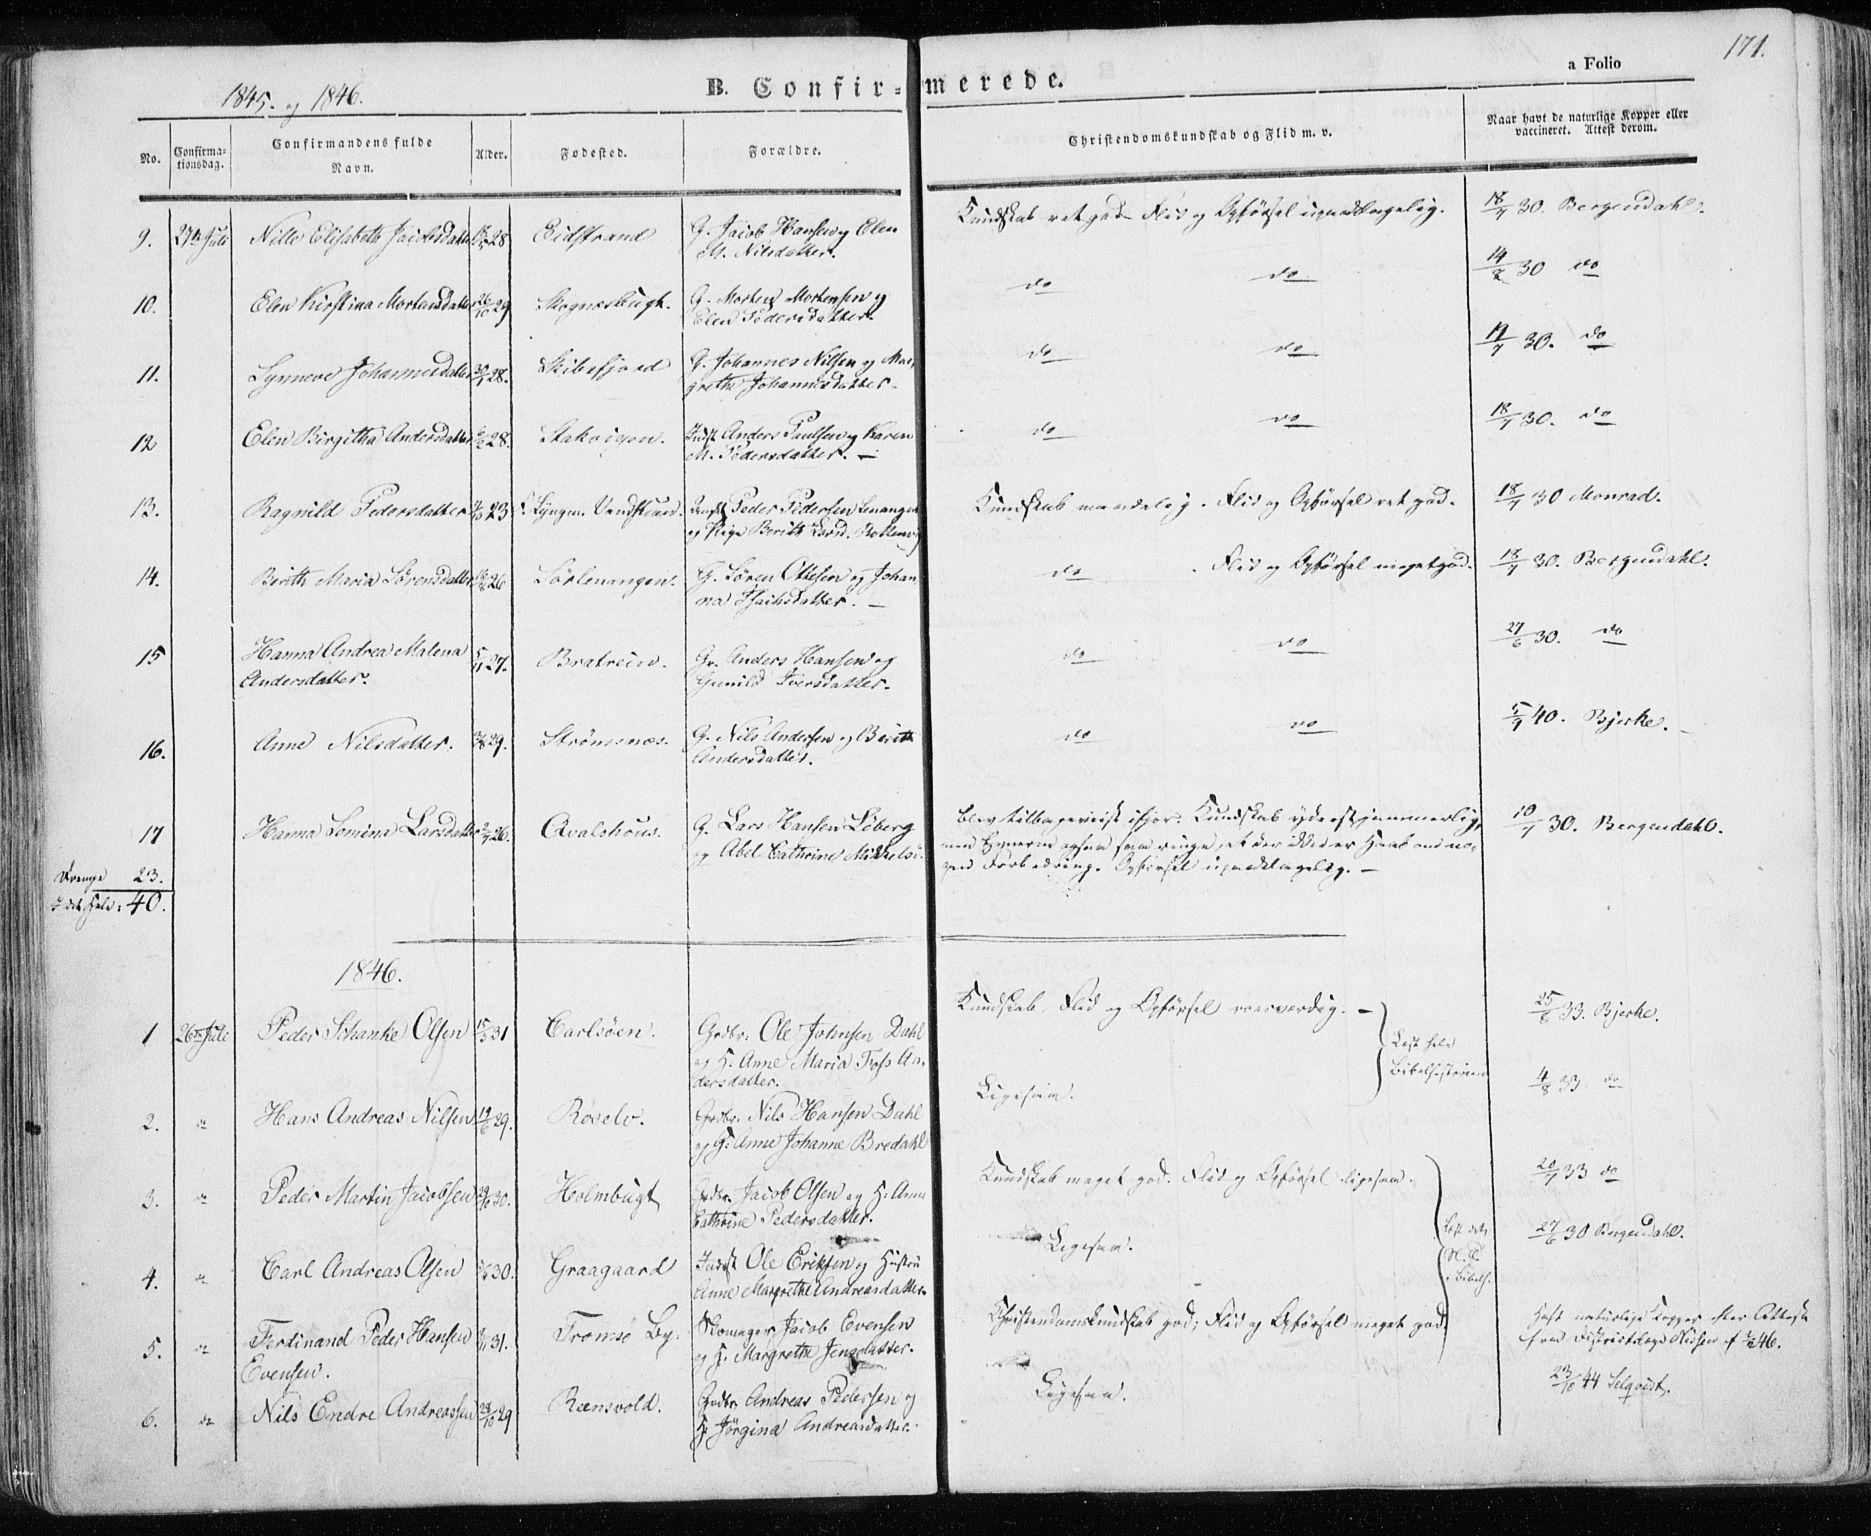 171.
1845. og 1846.
B. Confir=merede.
a Folio
No.
Confirma-
tionsdag.
Confirmandens fulde
Navn.
Alder.
Fødested.
Forældre.
Christendomskundskab og Flid m. v.
Naar havt de naturlige Kopper eller
vaccineret. Attest derom.
9. 27de Juli Nille Elisabeth Jacobsdatter 28 Eidstrand G. Jacob Hansen og Elen
M. Nilsdatter.
Kundskab ret god Flid og Opførsel upaaklagelig. 18/7 30. Bergendahl.
10. Elen Kirstina Mortensdatter 26/10 29 Skognesbugt. G. Morten Mortensen og
Elen Pedersdatter.
do do 14/8 30 do
11. Synneve Johannesdatter 30/1 28. Skibsfjord G. Johannes Nilsen og Mar-
grethe Johannesdatter.
do do 30. do
12 Elen Birgitha Andersdatter 28. Stakvigen. Indst Anders Paulsen og Karen
M. Pedersdatter. —
do do 18/7 30. do
13. Ragnild Pedersdatter 23 Lyngen. Peder Pedersen Lenangen
og Pige Berith Larsd.
Kundskab maadelig. Flid og Opførsel ret god. 18/7 30 Monrad.
14. Berith Maria Sørensdatter 26 Sørlenangen. G. Søren Ottesen og Johan
na Isachsdatter. —
do . Flid og Opførsel meget god. 18/7 30. Bergendahl.
15 Hanna Andrea Malena
Andersdatter. 5/11 27. Bratrein. Gr. Anders Hansen og
Gunild Iversdatter.
do do 27/6 30. do
16. Anne Nilsdatter. 29. Strømsnes. G. Nils Andersen og Berith
Andersdatter.
do do 5/9 40. Bjerke. —
17 Hanna Lomina Larsdatter 2/7 26. Qvalshous. G. Lars Hansen Løberg
og Abel Cathrine Mikkelsd.
Blev tilbageviist ifjor. Kundskab yderst jammerlig,
men Evnerne ogsaa saa ringe, at der ikke er Haab om no-
gen Forbedring. Opførsel upaaklagelig. —
10/7 30. Bergendahl.
Drenge 23.
I det Hele: 40.
1846.
1 26de Juli Peder Schanke Olsen 31 Carlsöen. Grdbr. Ole Johnsen Dahl
og H. Anne Maria Foss An-
dersdatter.
Kundskab, Flid og Opførsel roesværdig. —
Læst hele
Bibelhistorien
25/6 33. Bjerke.
2. " Hans Andreas Nilsen 19/6 29. Røselv. Grdbr. Nils Hansen Dahl
og H: Anne Johanne Bredahl
Ligesaa. 4/8 33. do
3. " Peder Martin Jacobsen 30. Holmbugt Grdbr. Jacob Olsen og H: Anne
Cathrine Pedersdatter.
Kundskab meget god. Flid og Opførsel ligesaa. 20/7 33 do
4. " Carl Andreas Olsen 30. Graagaard Indst Ole Eriksen og Hustru
Anne Margrethe Andreasdatter.
Ligesaa. 27/6 30 Bergendahl.
5. " Ferdinand Peder Hansen
Evensen. 31. Tromsø By. Skomager Jacob Evensen
og H. Margrethe Jensdatter.
Christendomskundskab god; Flid og Opførsel meget god
Havt naturlige Kopper efter Attest
fra Districtslæge Nielsen af 46.
6. " Nils Endre Andreassen 28/10 29 Reensvold. Grdbr Andreas Pedersen og
H. Jørgina Andreasdatter.
Ligesaa. 23/10 44 Selqvist.